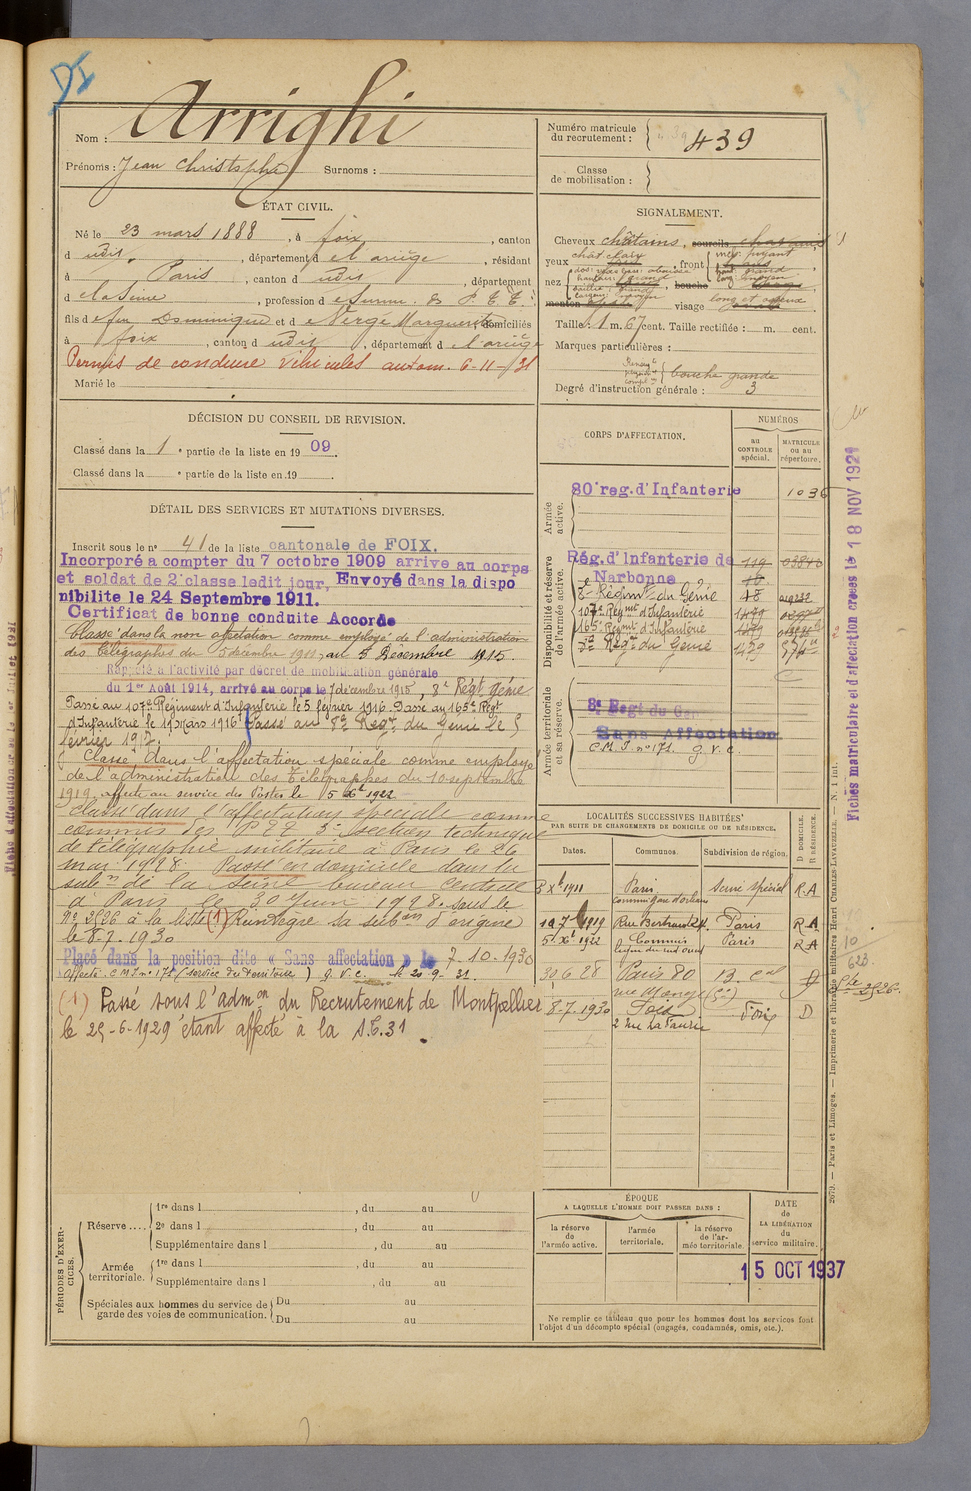 DI
Nom : Arrighi
Prénoms : Jean Christophe Surnoms :
Numéro matricule
du recrutement : 439
Classe
de mobilisation :
ÉTAT CIVIL.
Né le 23 mars 1888, à foix, canton
d udit, département d el ariège, résidant
à Paris, canton d udit, département
d e la Seine, profession d e P. E. E.
fils d e feu Dominique et d e Vergé Marguerite domiciliés
à foix, canton d udit, département d e l'ariège
Permis de conduire véhicules autom. 6-11-31
Marié le
SIGNALEMENT.
Cheveux châtains, sourcils chatains
yeux chat. clair, front
nez bouche
menton visage long et osseux
Taille : 1 m. 67 cent. Taille rectifiée : m. cent.
Marques particulières :
bouche grande
Degré d'instruction générale : 3
DÉCISION DU CONSEIL DE REVISION.
Classé dans la 1e partie de la liste en 1909.
Classé dans la e partie de la liste en 19 .
DÉTAIL DES SERVICES ET MUTATIONS DIVERSES.
Inscrit sous le n° 41 de la liste cantonale de FOIX.
Incorporé a compter du 7 octobre 1909 arrive au corps
et soldat de 2e classe ledit jour, Envoyé dans la dispo
nibilite le 24 Septembre 1911.
Certificat de bonne conduite Accordé
Classé dans la non affectation comme employé de l'administration
des télégraphes du 5 décembre 1911, au 5 Décembre 1915.
Rappelé à l'activité par décret de mobilisation générale
du 1er Août 1914, arrivé au corps le 7 décembre 1915, 8e Régt Génie
Passé au 107e Régiment d'Infanterie le 5 février 1916. Passé au 165e Régt
d'Infanterie le 19 Mars 1916. Passé au 8e Régt du Génie le 5
février 1917.
Classé dans l'affectation spéciale comme employé
de l'administration des Télégraphes du 10 septembre
1919, affecté au service des Postes le 5 Xbre 1922
Classé dans l'affectation spéciale comme
commis des P T T 3e section technique
de télégraphie militaire à Paris le 26
mai 1928. Passé en domicile dans la
subon de la Seine bureau central
à Paris le 30 Juin 1928. sous le
n° 2526 à la liste (1) Réintègre sa subon d'origine
le 8.7.1930
Placé dans la position dite « Sans affectation » le 7.10.1930
Affecté. C.M.I. n° 171 (service du territoire) G.V.C. le 20.9.31.
(1) Passé sous l'admon du Recrutement de Montpellier
le 25-6-1929 étant affecté à la S.T. 31
CORPS D'AFFECTATION.
NUMÉROS
au
CONTROLE
spécial.
MATRICULE
ou au
répertoire.
Armée
active.
80e reg. d'Infanterie 1036
Disponibilité et réserve
de l'armée active.
Rég. d'Infanterie de 119
Narbonne
8e Régimt du Génie 18
107e Régimt d'Infanterie
165e Régimt d'Infanterie
8e Régt du Génie
Armée territoriale
et sa réserve.
8e Regt du Génie
Sans Affectation
C.M.I. n° 171. G.V.C.
LOCALITÉS SUCCESSIVES HABITÉES
PAR SUITE DE CHANGEMENTS DE DOMICILE OU DE RÉSIDENCE.
Dates. Communes. Subdivision de région. D DOMICILE. R RÉSIDENCE.
5 Xbre 1911 Paris Seine spécial RA
commis gare d'orléans
19 7 1919 Rue Bertrand 24 Paris RA
5 Xbre 1922 Commis Paris RA
30 6 28 Paris 80 B. cal D
rue Monge
8-7.1930 Foix Foix D
2 rue La Faurie
Fiches matriculaire et d'affectation créées le 18 NOV 1921
10
623
2526.
2679. — Paris et Limoges. — Imprimerie et librairie militaires Henri CHARLES-LAVAUZELLE. — N. 1 int.
PÉRIODES D'EXER-
CICES.
Réserve....
1re dans l , du au
2e dans l , du au
Supplémentaire dans l , du au
Armée
territoriale.
1re dans l , du au
Supplémentaire dans l , du au
Spéciales aux hommes du service de
garde des voies de communication.
Du au
Du au
ÉPOQUE
A LAQUELLE L'HOMME DOIT PASSER DANS :
la réserve
de
l'armée active.
l'armée
territoriale.
la réserve
de l'ar-
mée territoriale.
DATE
de
LA LIBÉRATION
du
service militaire.
15 OCT 1937
Ne remplir ce tableau que pour les hommes dont les services font
l'objet d'un décompte spécial (engagés, condamnés, omis, etc.).